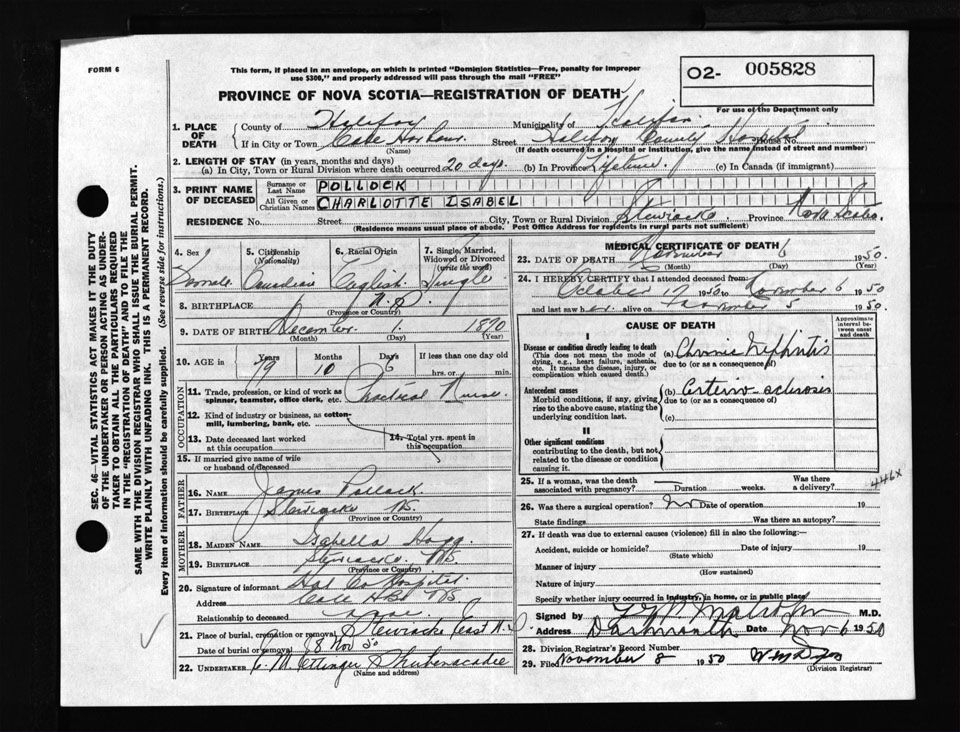 FORM 6
This form, if placed in an envelope, on which is printed "Dominion Statistics—Free, penalty for improper
use $300," and properly addressed will pass through the mail "FREE"
O2- 005828
PROVINCE OF NOVA SCOTIA—REGISTRATION OF DEATH
For use of the Department only
1. PLACE OF DEATH County of Halifax Municipality of Halifax
If in City or Town Cole Harbour Street Halifax County Hospital House No.
(Name) (If death occurred in a hospital or institution, give the name instead of street and number)
2. LENGTH OF STAY (in years, months and days)
(a) In City, Town or Rural Division where death occurred 20 days. (b) In Province Lifetime. (c) In Canada (if immigrant)
3. PRINT NAME OF DECEASED Surname or Last Name POLLOCK
All Given or Christian Names CHARLOTTE ISABEL
RESIDENCE No. Street City, Town or Rural Division Stewiacke Province Nova Scotia
(Residence means usual place of abode. Post Office Address for residents in rural parts not sufficient)
SEC. 46—VITAL STATISTICS ACT MAKES IT THE DUTY
OF THE UNDERTAKER OR PERSON ACTING AS UNDER-
TAKER TO OBTAIN ALL THE PARTICULARS REQUIRED
IN THE "REGISTRATION OF DEATH" AND TO FILE THE
SAME WITH THE DIVISION REGISTRAR WHO SHALL ISSUE THE BURIAL PERMIT.
WRITE PLAINLY WITH UNFADING INK. THIS IS A PERMANENT RECORD.
Every item of information should be carefully supplied. (See reverse side for instructions.)
4. Sex Female
5. Citizenship (Nationality) Canadian
6. Racial Origin English
7. Single, Married, Widowed or Divorced (write the word) Single
8. BIRTHPLACE N.S.
(Province or Country)
9. DATE OF BIRTH December 1. 1870
(Month) (Day) (Year)
10. AGE in Years Months Days If less than one day old
79 10 6 hrs. or min.
OCCUPATION
11. Trade, profession, or kind of work as spinner, teamster, office clerk, etc. Practical Nurse.
12. Kind of industry or business, as cotton-mill, lumbering, bank, etc.
13. Date deceased last worked at this occupation
14. Total yrs. spent in this occupation
15. If married give name of wife or husband of deceased
FATHER
16. NAME James Pollock.
17. BIRTHPLACE Stewiacke NS.
(Province or Country)
MOTHER
18. MAIDEN NAME Isabella Hogg
19. BIRTHPLACE Stewiacke NS.
(Province or Country)
20. Signature of informant Hal Co Hospital.
Address Cole Hbr NS
Relationship to deceased
21. Place of burial, cremation or removal Stewiacke East N.S.
Date of burial or removal 8 Nov 50
22. UNDERTAKER C. M. Ettinger Shubenacadie
(Name and address)
MEDICAL CERTIFICATE OF DEATH
23. DATE OF DEATH November 6 1950
(Month) (Day) (Year)
24. I HEREBY CERTIFY that I attended deceased from
October 1950 to November 6 1950
and last saw her alive on November 5 1950
CAUSE OF DEATH
Approximate interval between onset and death
I
Disease or condition directly leading to death
(This does not mean the mode of dying, e.g., heart failure, asthenia, etc. It means the disease, injury, or complication which caused death.)
(a) Chronic Nephritis
due to (or as a consequence of)
Antecedent causes
Morbid conditions, if any, giving rise to the above cause, stating the underlying condition last.
(b) Arterio-sclerosis
due to (or as a consequence of)
(c)
II
Other significant conditions
contributing to the death, but not related to the disease or condition causing it.
446X
25. If a woman, was the death associated with pregnancy? Duration weeks. Was there a delivery?
26. Was there a surgical operation? No Date of operation 19
State findings Was there an autopsy?
27. If death was due to external causes (violence) fill in also the following:—
Accident, suicide or homicide? Date of injury 19
(State which)
Manner of injury
(How sustained)
Nature of injury
Specify whether injury occurred in industry, in home, or in public place
Signed by M.D.
Address Dartmouth Date Nov 6 1950
28. Division Registrar's Record Number
29. Filed November 8 1950
(Division Registrar)